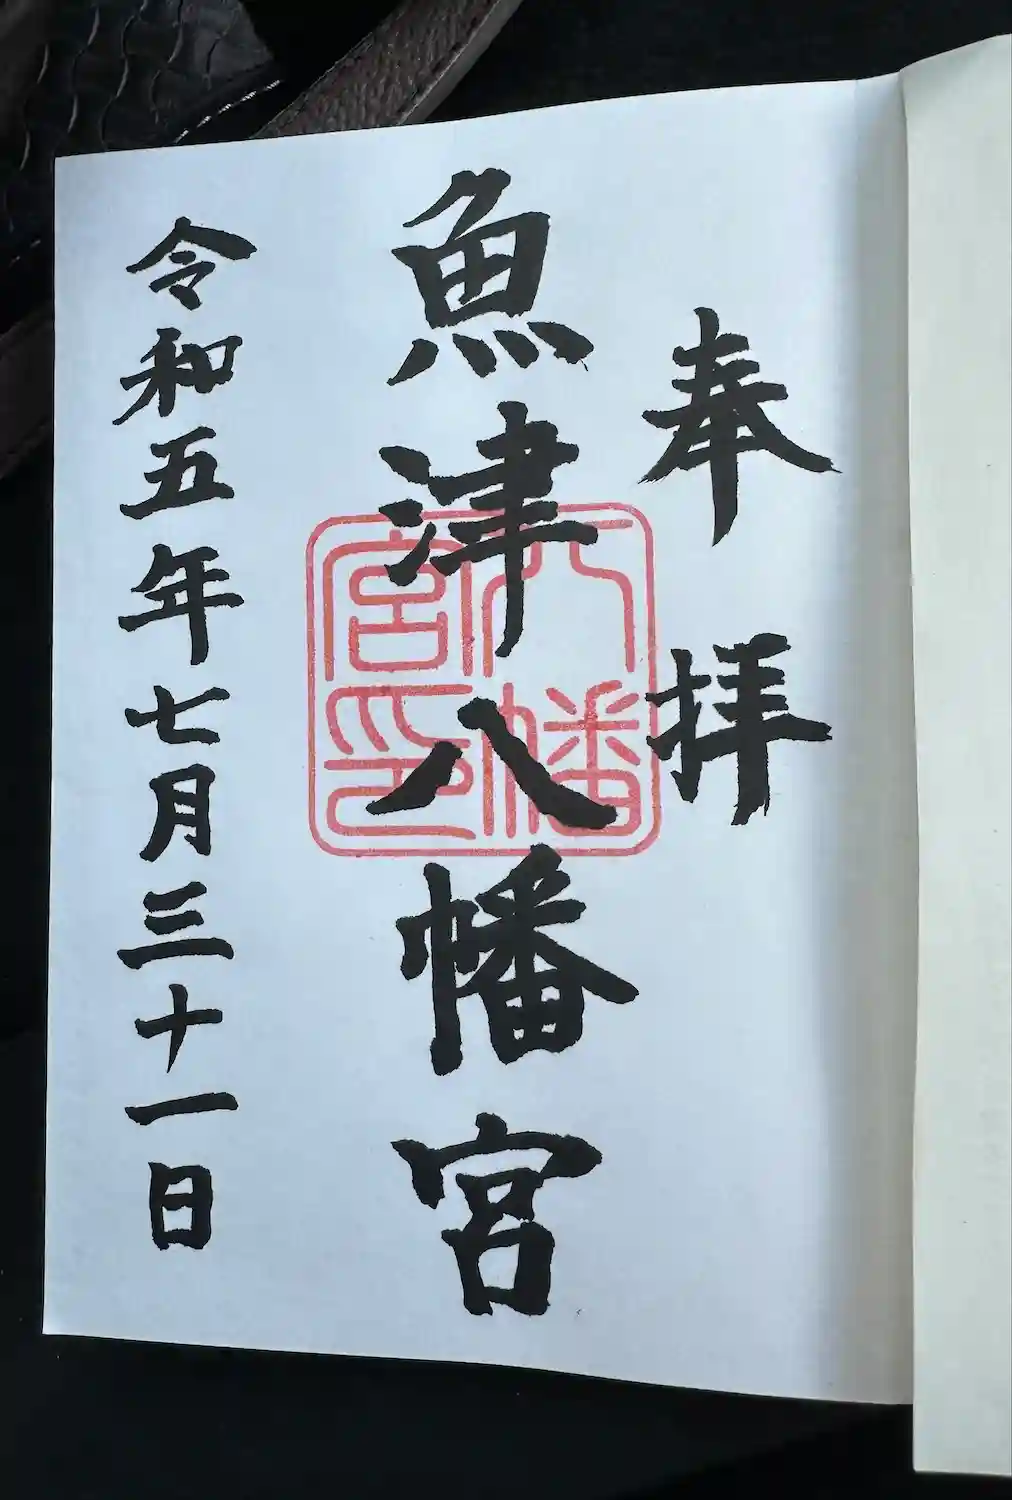 奉拝
魚津八幡宮
令和五年七月三十一日
八幡
宮印